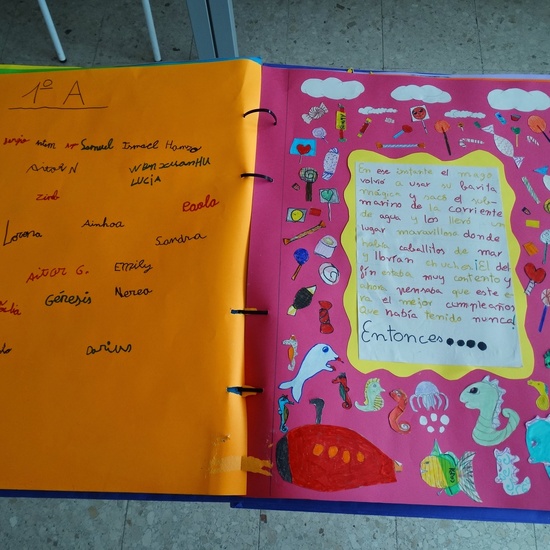 1º A
Samuel Ismael Hamza
Aitor N WENXUANHU
LUCIA
Paola
Lorena Ainhoa
Sandra
Aitor G. Emily
Génesis Nerea
Darius
En ese instante el mago
volvió a usar su barita
mágica y sacó el sub-
marino de la corriente
de agua y los llevó a un
lugar maravilloso donde
había caballitos de mar
y llovían chuches. ¡El del
fín estaba muy contento y
ahora pensaba que este e-
ra el mejor cumpleaños
que había tenido nunca!
Entonces....